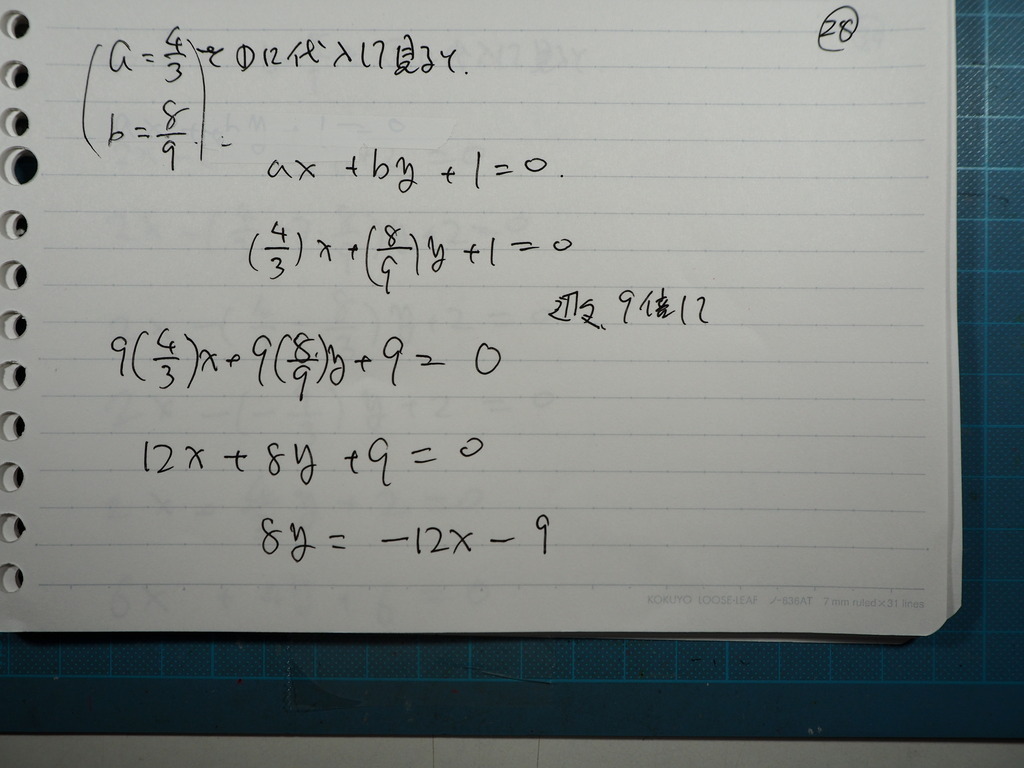 28
a = 4/3 を①に代入して見ると.
b = 8/9
ax + by + 1 = 0.
(4/3)x + (8/9)y + 1 = 0
辺々、9倍して
9(4/3)x + 9(8/9)y + 9 = 0
12x + 8y + 9 = 0
8y = -12x - 9
KOKUYO LOOSE-LEAF ノ-836AT 7 mm ruled×31 lines